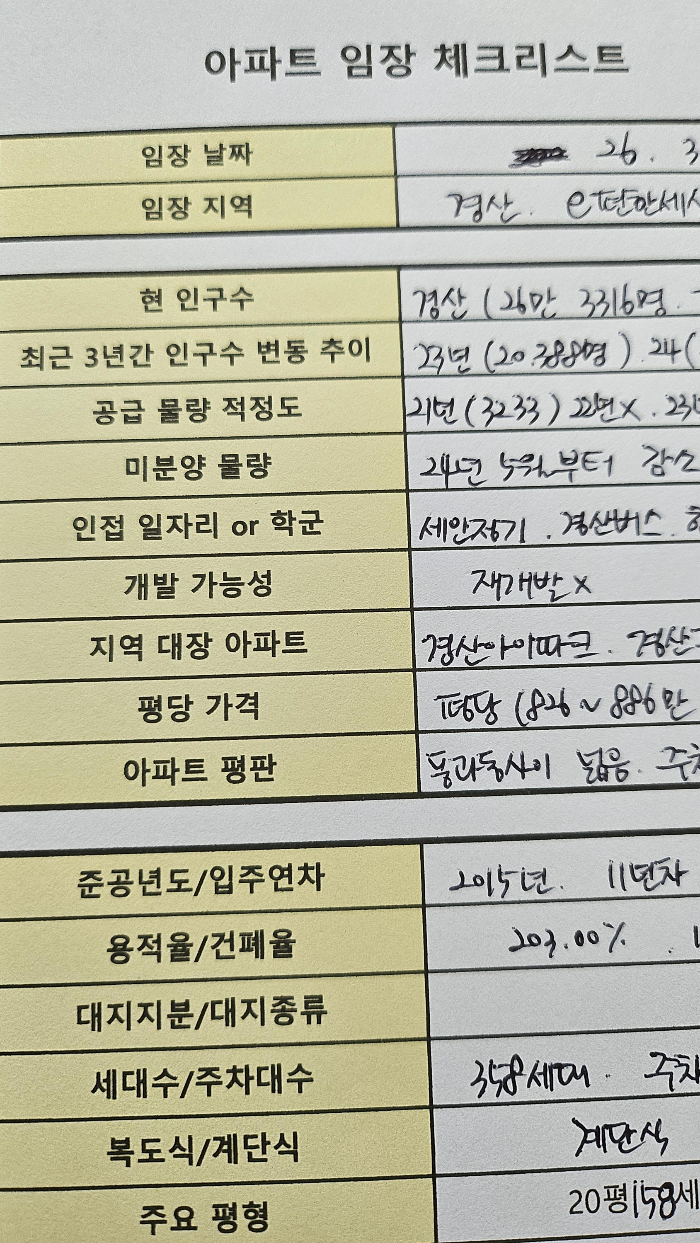 아파트 임장 체크리스트
임장 날짜 26. 3
임장 지역 경산. e편한세
현 인구수 경산 (26만 3316명.
최근 3년간 인구수 변동 추이 23년 (20.388명). 24(
공급 물량 적정도 21년 (3233) 22년x. 23년
미분양 물량 24년 5월부터 감소
인접 일자리 or 학군 세안정기. 경산버스.
개발 가능성 재개발x
지역 대장 아파트 경산아이파크. 경산
평당 가격 평당 (826~886만
아파트 평판 동과동사이 넓음. 주차
준공년도/입주연차 2015년. 11년차
용적율/건폐율 203.00%.
대지지분/대지종류
세대수/주차대수 358세대. 주차
복도식/계단식 계단식
주요 평형 20평 158세